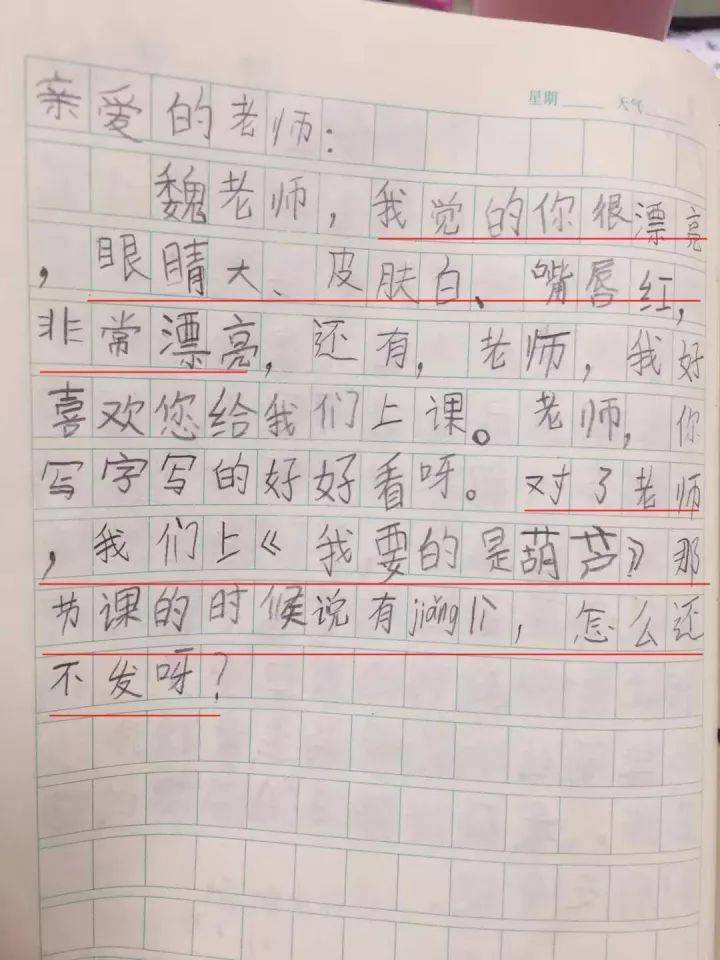 星期 天气
亲爱的老师：
魏老师，我觉的你很漂亮
，眼睛大、皮肤白、嘴唇红，
非常漂亮，还有，老师，我好
喜欢您给我们上课。老师，你
写字写的好好看呀。对了老师
，我们上《我要的是葫芦》那
节课的时候说有jiǎng品，怎么还
不发呀？